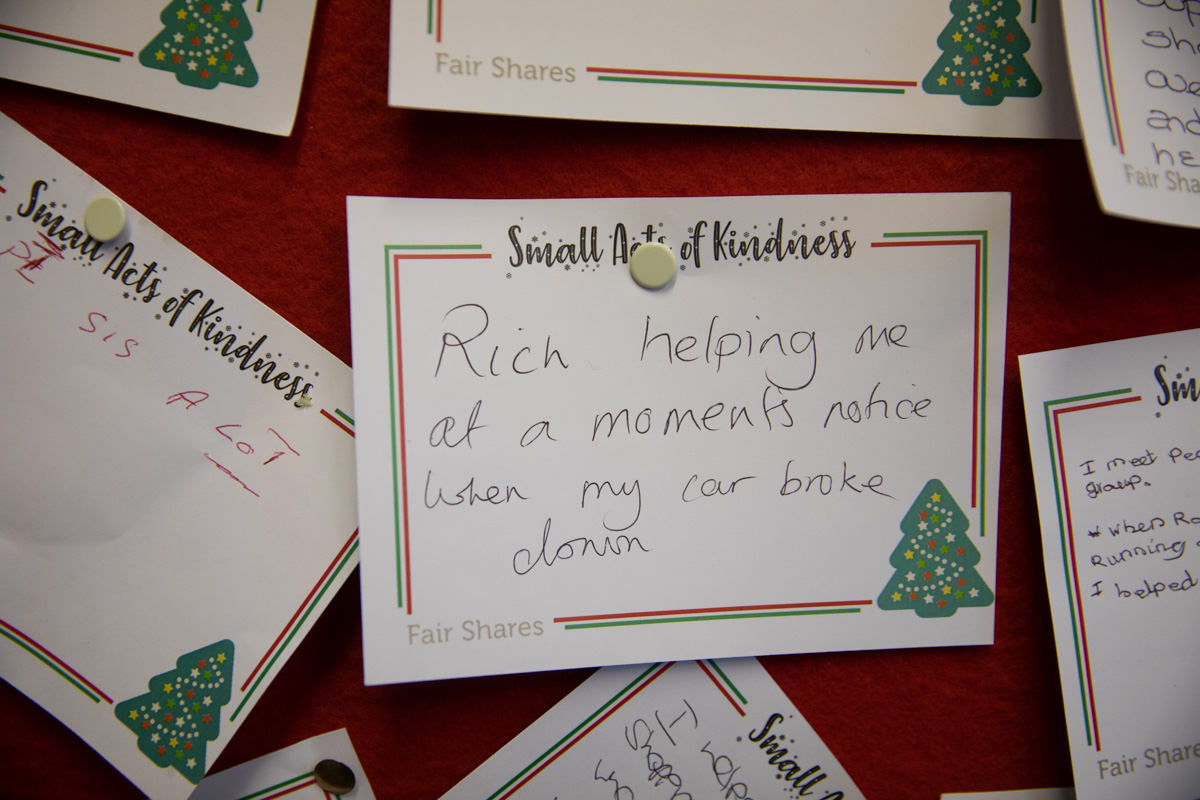 Fair Shares
and
Fair Sha
Small Acts of Kindness
SIS
A
LOT
Small Acts of Kindness
Rich helping me
at a moments notice
when my car broke
down
Fair Shares
I meet Peo
group.
* when Ro
Running
I helped
Fair Shares
Small